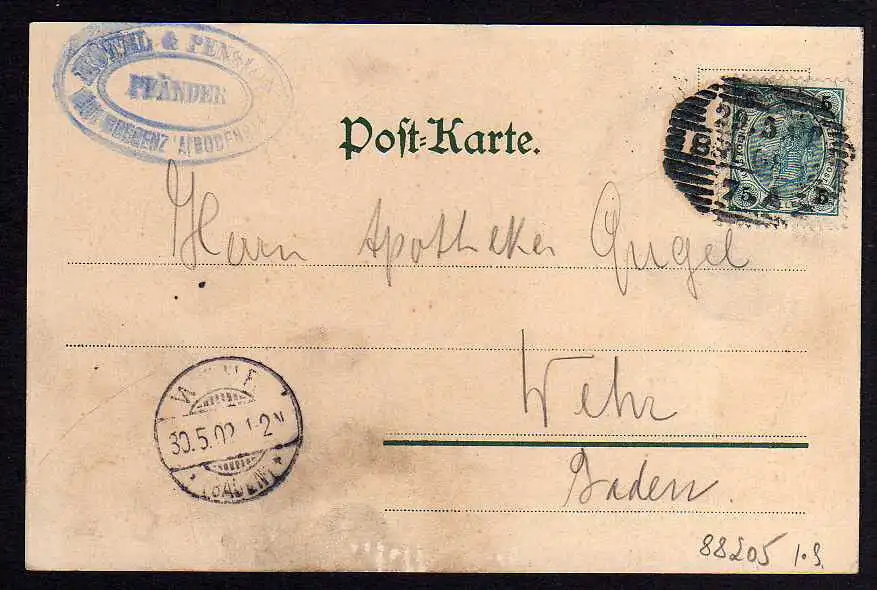 HOTEL & PENSION
PFÄNDER
BREGENZ A/BODENSEE
Post-Karte.
5 5
5 5
Herrn Apotheker Gugel
Wehr
Baden.
WEHR
30.5.02 1-2N
* (BADEN) *
88205 1.S